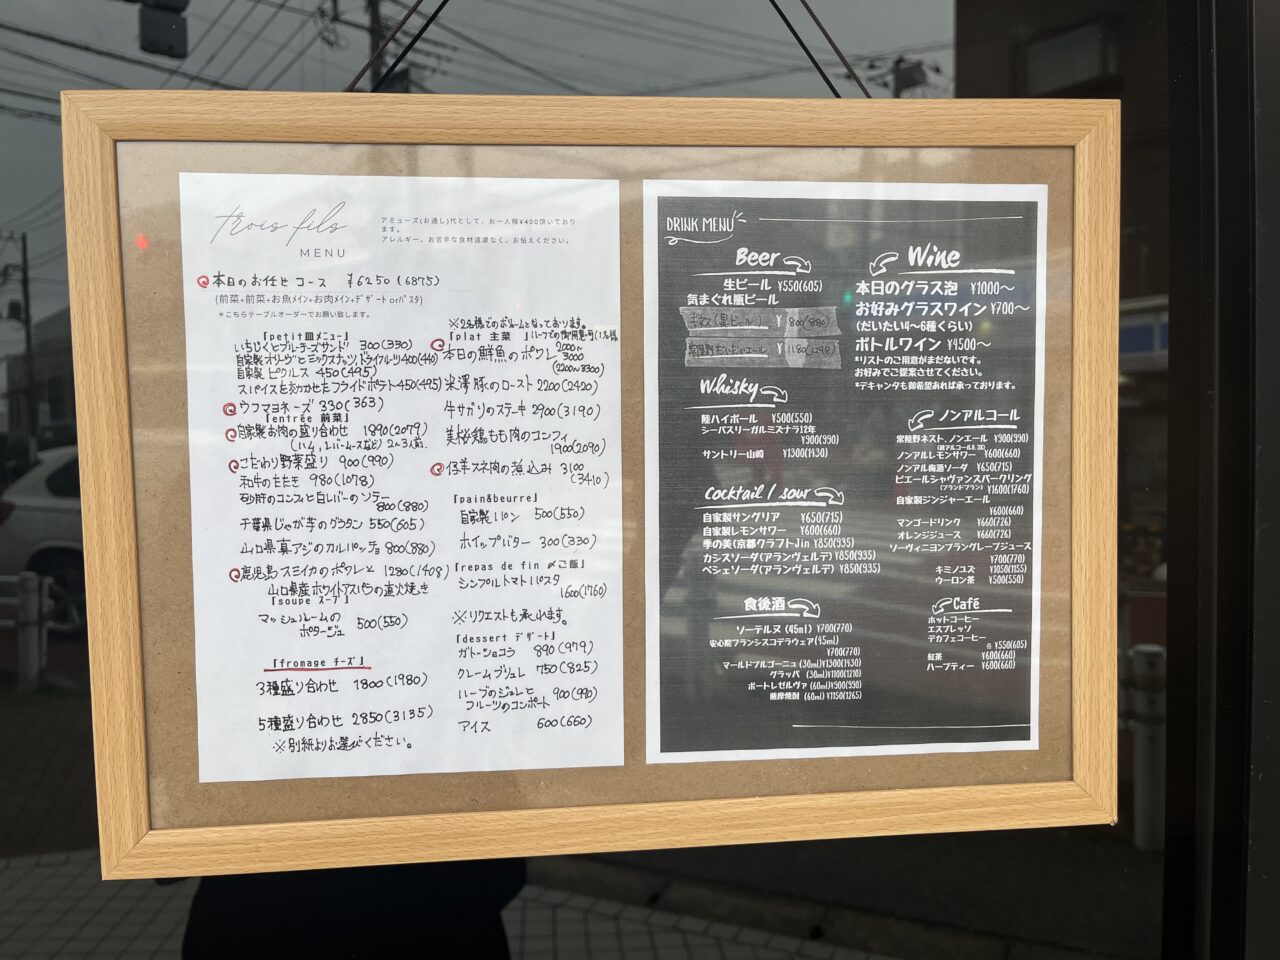 trois fils
MENU
アミューズ(お通し)代として、お一人様¥400頂いており
ます。
アレルギー、お苦手な食材遠慮なく、お伝えください。
本日のお任せコース ¥6250(6875)
(前菜+前菜+お魚メイン+お肉メイン+デザート orパスタ)
*こちらテーブルオーダーでお願い致します。
『petit皿メニュー』
いちじくとブルーチーズサンド 300(330)
自家製オリーヴとミックスナッツ,ドライフルーツ400(440)
自家製ピクルス 450(495)
スパイスを効かせたフライドポテト450(495)
ウフマヨネーズ 330(363)
『entrée 前菜』
自家製お肉の盛り合わせ 1890(2079)
(ハム,レバームースなど) 2〜3人前
こだわり野菜盛り 900(990)
和牛のたたき 980(1078)
砂肝のコンフィと白レバーのソテー
800(880)
千葉県じゃが芋のグラタン 550(605)
山口県真アジのカルパッチョ 800(880)
鹿児島スミイカのポワレと 1280(1408)
山口県産ホワイトアスパラの直火焼き
『soupe スープ』
マッシュルームの
ポタージュ 500(550)
『fromage チーズ』
3種盛り合わせ 1800(1980)
5種盛り合わせ 2850(3135)
※別紙よりお選びください。
※2名様でのボリュームとなっております。
『plat 主菜 』
本日の鮮魚のポワレ 2000〜
3000
(2200〜3300)
米澤豚のロースト 2200(2420)
牛サガリのステーキ 2900(3190)
美桜鶏もも肉のコンフィ
1900(2090)
仔羊スネ肉の煮込み 3100
(3410)
『pain&beurre』
自家製パン 500(550)
ホイップバター 300(330)
『repas de fin 〆ご飯』
シンプルトマトパスタ
1600(1760)
※リクエストも承れます。
『dessert デザート』
ガトーショコラ 890(979)
クレームブリュレ 750(825)
ハーブのジュレと 900(990)
フルーツのコンポート
アイス 600(660)
DRINK MENU
Beer
生ビール ¥550(605)
気まぐれ瓶ビール
ギネス(黒ビール) ¥ 800(880)
¥ 1180(1298)
Whisky
陸ハイボール ¥500(550)
シーバスリーガルミズナラ12年
¥900(990)
サントリー山崎 ¥1300(1430)
Cocktail / sour
自家製サングリア ¥650(715)
自家製レモンサワー ¥600(660)
季の美(京都クラフトJin ¥850(935)
カシスソーダ(アランヴェルデ) ¥850(935)
ペシェソーダ(アランヴェルデ) ¥850(935)
食後酒
ソーテルヌ (45ml) ¥700(770)
安心院フランシスコデラウェア(45ml)
¥700(770)
マールドブルゴーニュ (30ml) ¥1300(1430)
グラッパ (30ml) ¥1100(1210)
ポートレゼルヴァ (60ml) ¥900(990)
薩摩焼酎 (60ml) ¥1150(1265)
Wine
本日のグラス泡 ¥1000〜
お好みグラスワイン ¥700〜
(だいたい4〜6種くらい)
ボトルワイン ¥4500〜
*リストのご用意がまだないです。
お好みでご提案させてください。
*デキャンタも御希望あれば承っております。
ノンアルコール
常陸野ネスト.ノンエール ¥900(990)
ノンアルレモンサワー ¥600(660)
ノンアル梅酒ソーダ ¥650(715)
ピエールシャヴァンスパークリング
(ブランドブラン) ¥1600(1760)
自家製ジンジャーエール
¥600(660)
マンゴードリンク ¥660(726)
オレンジジュース ¥660(726)
ソーヴィニヨンブラングレープジュース
¥700(770)
キミノユズ ¥1050(1155)
ウーロン茶 ¥500(550)
Café
ホットコーヒー
エスプレッソ
デカフェコーヒー
各 ¥550(605)
紅茶 ¥600(660)
ハーブティー ¥600(660)